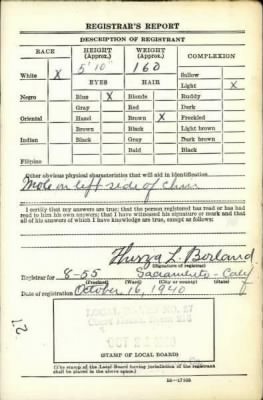 REGISTRAR'S REPORT
DESCRIPTION OF REGISTRANT
RACE HEIGHT (Approx.) WEIGHT (Approx.) COMPLEXION
5' 10" 160 Sallow
White X EYES HAIR Light X
Negro Blue X Blonde Ruddy
Gray Red Dark
Oriental Hazel Brown X Freckled
Brown Black Light brown
Indian Black Gray Dark brown
Bald Black
Filipino
Other obvious physical characteristics that will aid in identification
Mole on left side of chin
I certify that my answers are true; that the person registered has read or has had
read to him his own answers; that I have witnessed his signature or mark and that
all of his answers of which I have knowledge are true, except as follows:
L. Borland
(Signature of registrar)
Registrar for 8-55 Sacramento Calif
(Precinct) (Ward) (City or county) (State)
Date of registration October 16, 1940
LOCAL BOARD NO. 27
OCT 23 1940
(STAMP OF LOCAL BOARD)
(The stamp of the Local Board having jurisdiction of the registrant
shall be placed in the above space.)
16-17105